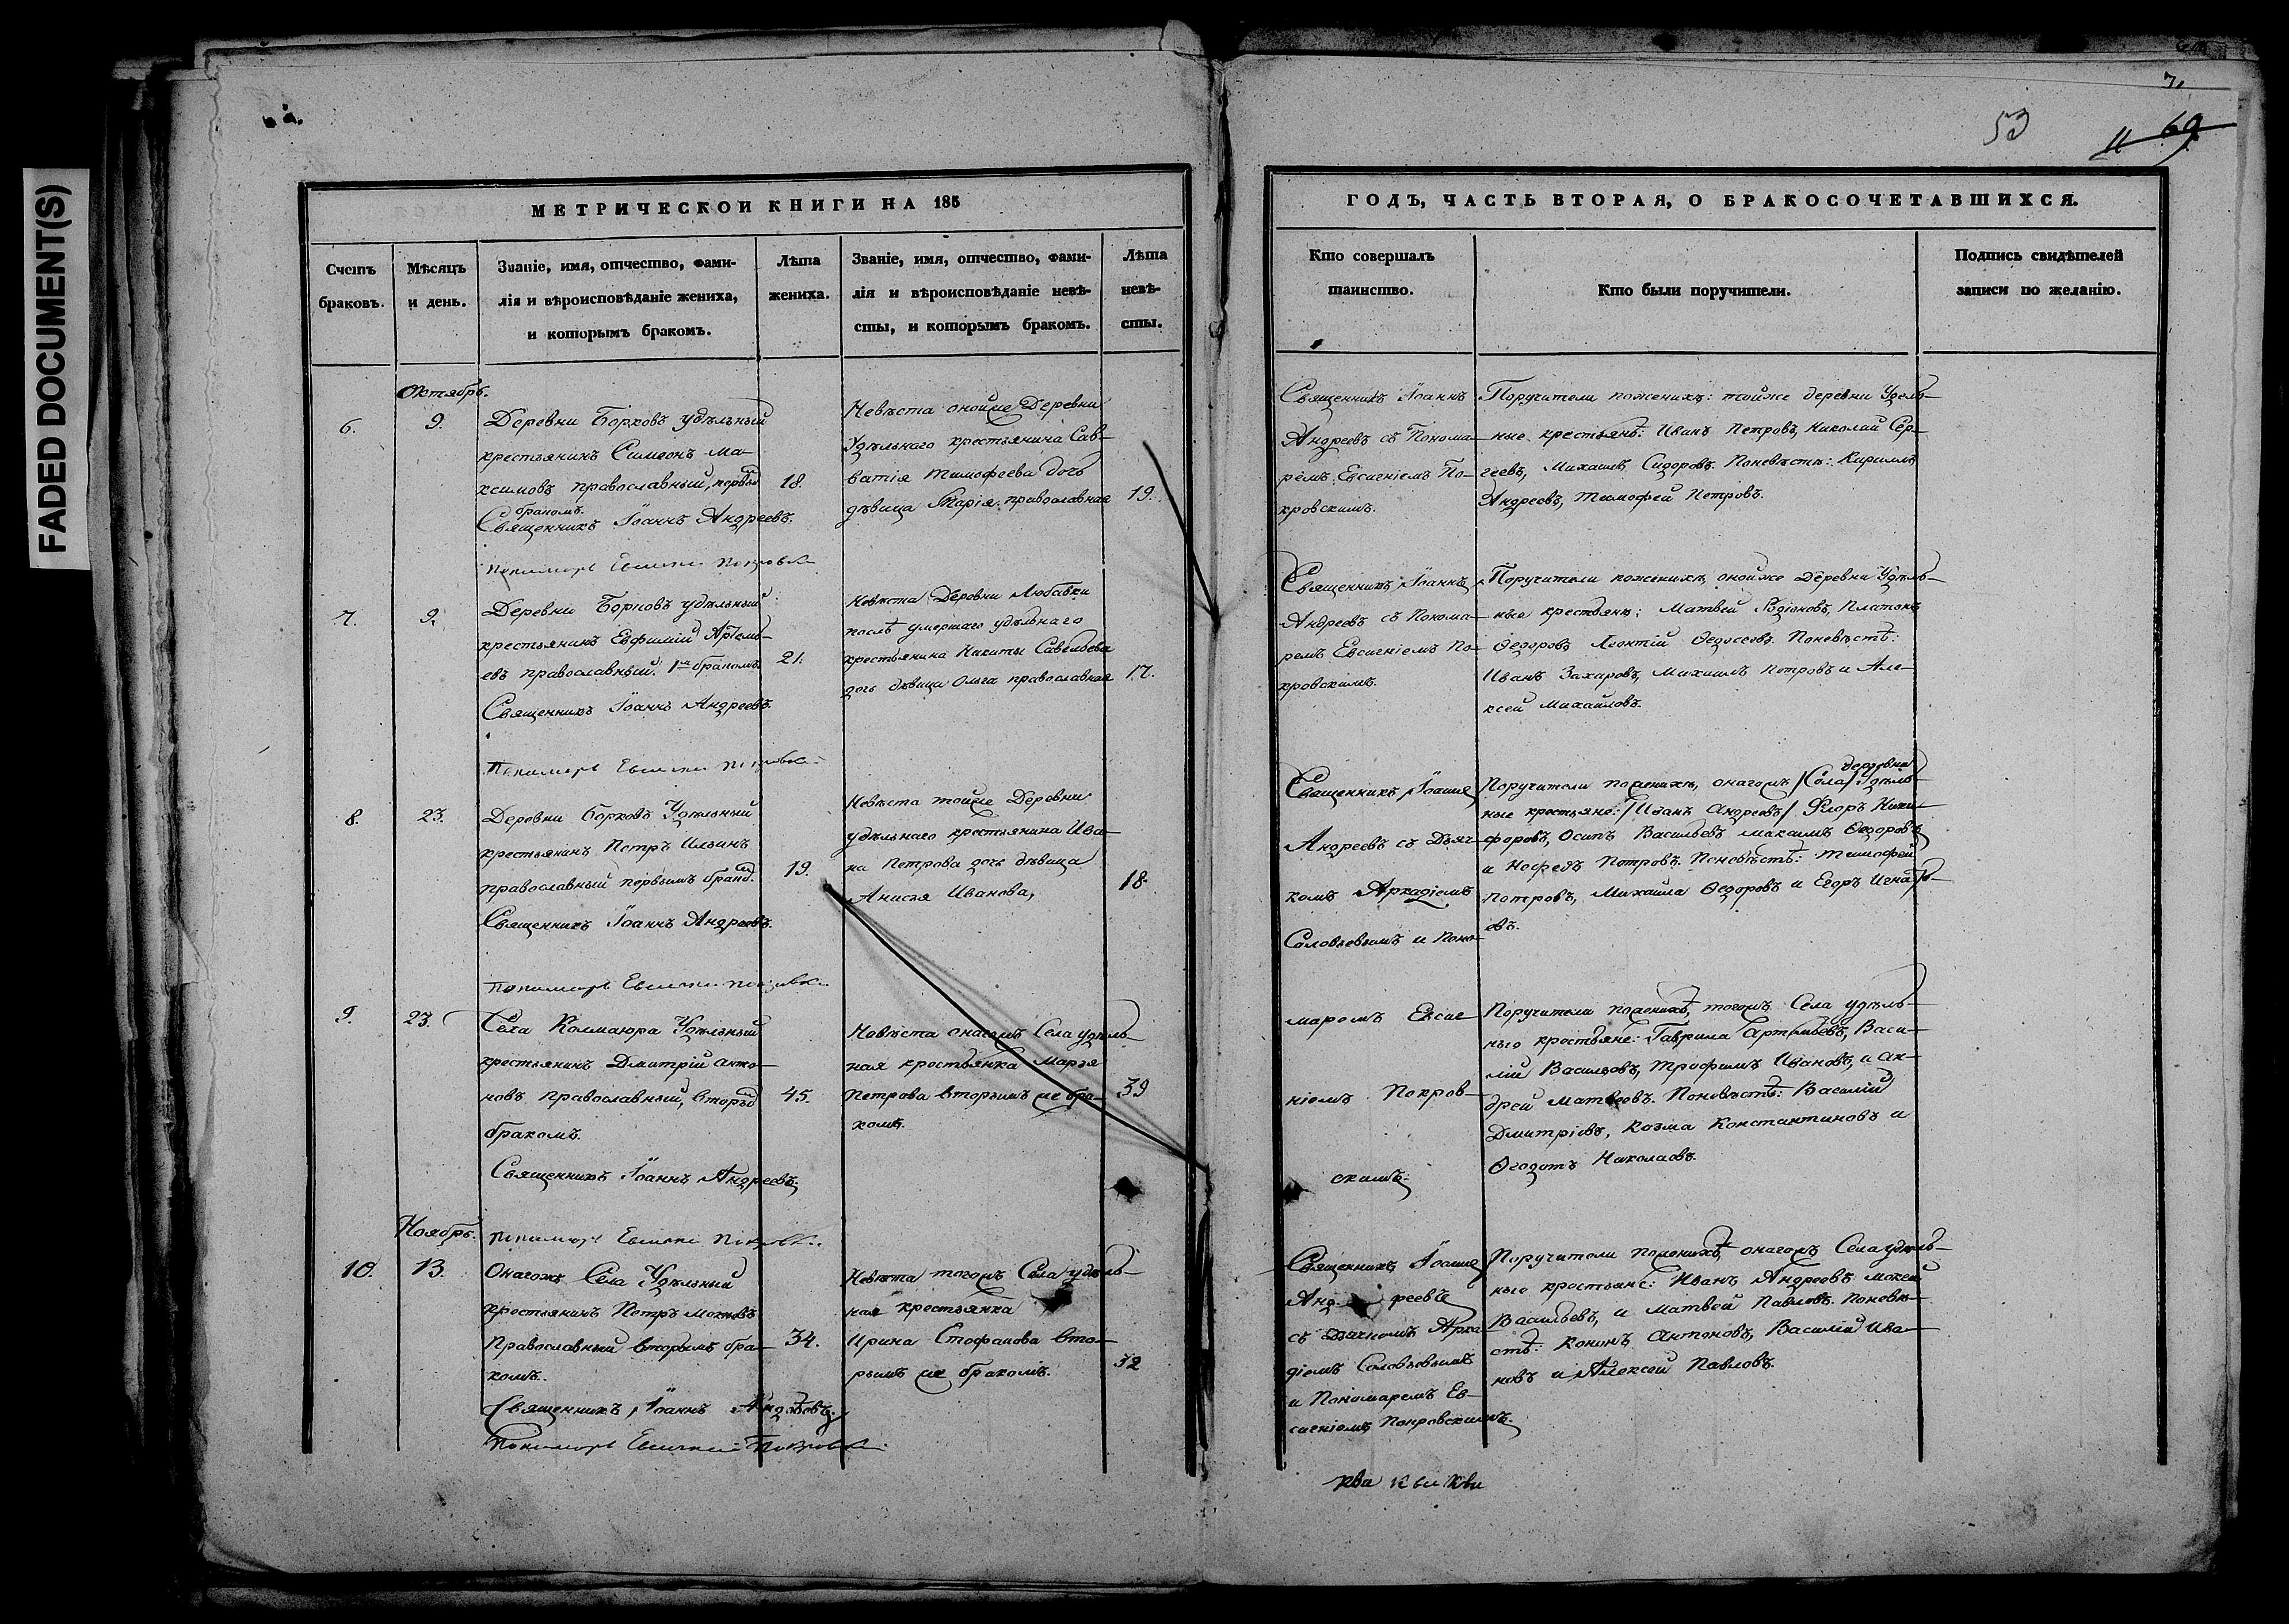 FADED DOCUMENT(S)
53
69
МЕТРИЧЕСКОЙ КНИГИ НА 185
Счетъ браковъ.
Мѣсяцъ и день.
Званіе, имя, отчество, фами-
лія и вѣроисповѣданіе жениха,
и которымъ бракомъ.
Лѣта жениха.
Званіе, имя, отчество, фами-
лія и вѣроисповѣданіе невѣ-
сты, и которымъ бракомъ.
Лѣта невѣ-
сты.
Октябрь.
6.
9.
Деревни Борковъ удѣльный
крестьянинъ Симеонъ Ма-
ксимовъ православный, первым
бракомъ.
18.
Священникъ Іоаннъ Андреевъ.
Невѣста оной же Деревни
Удѣльнаго крестьянина Сав-
ватія Тимофеева дочь
дѣвица Марія православная
19.
7.
9.
Деревни Борковъ удѣльный
крестьянинъ Евфимій Артемь-
евъ православный. 1м бракомъ
21.
Священникъ Іоаннъ Андреевъ.
Невѣста Деревни Любавки
послѣ умершаго удѣльнаго
крестьянина Никиты Савельева
дочь дѣвица Ольга православная
17.
8.
23.
Деревни Борковъ Удѣльный
крестьянинъ Петръ Ильинъ
православный первымъ брако.
19.
Священникъ Іоаннъ Андреевъ.
Невѣста той же Деревни
удѣльнаго крестьянина Ива-
на Петрова дочь дѣвица
Анисья Иванова,
18.
9.
23.
Села Колмаюра Удѣльный
крестьянинъ Дмитрій Анто-
новъ православный, вторым
бракомъ.
45.
Священникъ Іоаннъ Андреевъ.
Невѣста онагожъ Села удѣль-
ная крестьянка Марья
Петрова вторымъ же бра-
комъ.
39
Ноябрь.
10.
13.
Онагожъ Села Удѣльный
крестьянинъ Петръ
Православный вторымъ бра-
комъ.
34.
Священникъ, Іоаннъ Андреевъ.
Невѣста тогожъ Села удѣль-
ная крестьянка
Ирина Стефанова вто-
рымъ же бракомъ.
32
ГОДЪ, ЧАСТЬ ВТОРАЯ, О БРАКОСОЧЕТАВШИХСЯ.
Кто совершалъ таинство.
Кто были поручители.
Подпись свидѣтелей
записи по желанію.
Священникъ Іоаннъ
Андреевъ съ Понома-
ремъ Евсигніемъ По-
кровскимъ.
Поручители по женихѣ: той же деревни Удѣль-
ные крестьянѣ: Иванъ Петровъ, Николай Сер-
геевъ, Михаилъ Сидоровъ. По невѣстѣ: Кириллъ
Андреевъ, Тимофей Петровъ.
Священникъ Іоаннъ
Андреевъ съ Понома-
ремъ Евсигніемъ По-
кровскимъ.
Поручители по женихѣ оной же Деревни Удѣль-
ные крестьянѣ: Матвей Родіоновъ, Платонъ
Ѳедоровъ Леонтій Ѳедосеевъ. По невѣстѣ:
Иванъ Захаровъ, Михаилъ Петровъ и Але-
ксей Михайловъ.
Священникъ Іоаннъ
Андреевъ съ Дьяч-
комъ Аркадіемъ
Соловьевымъ и Поно-
маремъ Евсиг-
ніемъ Покров-
скимъ.
деревни
Поручители по женихѣ, онагожъ /Села/ Удѣль-
ные крестьяне: /Иванъ Андреевъ/ Флоръ Ники-
форовъ, Осипъ Васильевъ Максимъ Ѳедоровъ
и Нефедъ Петровъ. По невѣстѣ: Тимофей
Петровъ, Михаила Ѳедоровъ и Егоръ Игнать-
евъ.
Поручители по женихѣ, тогожъ Села удѣль-
ные крестьяне: Гаврила Артемьевъ, Васи-
лій Васильевъ, Трофимъ Ивановъ, и Ан-
дрей Матвеевъ. По невѣстѣ: Василій
Дмитріевъ, Козма Константиновъ и
Ѳедотъ Николаевъ.
Священникъ Іоаннъ
Андреевъ
съ Дьячкомъ Арка-
діемъ Соловьевымъ
и Пономаремъ Ев-
сигніемъ Покровскимъ.
Поручители по женихѣ, онагожъ Села удѣль-
ные крестьяне: Иванъ Андреевъ Мокей
Васильевъ, и Матвей Павловъ. По невѣ-
стѣ: Кононъ Антоновъ, Василій Ива-
новъ и Алексей Павловъ.